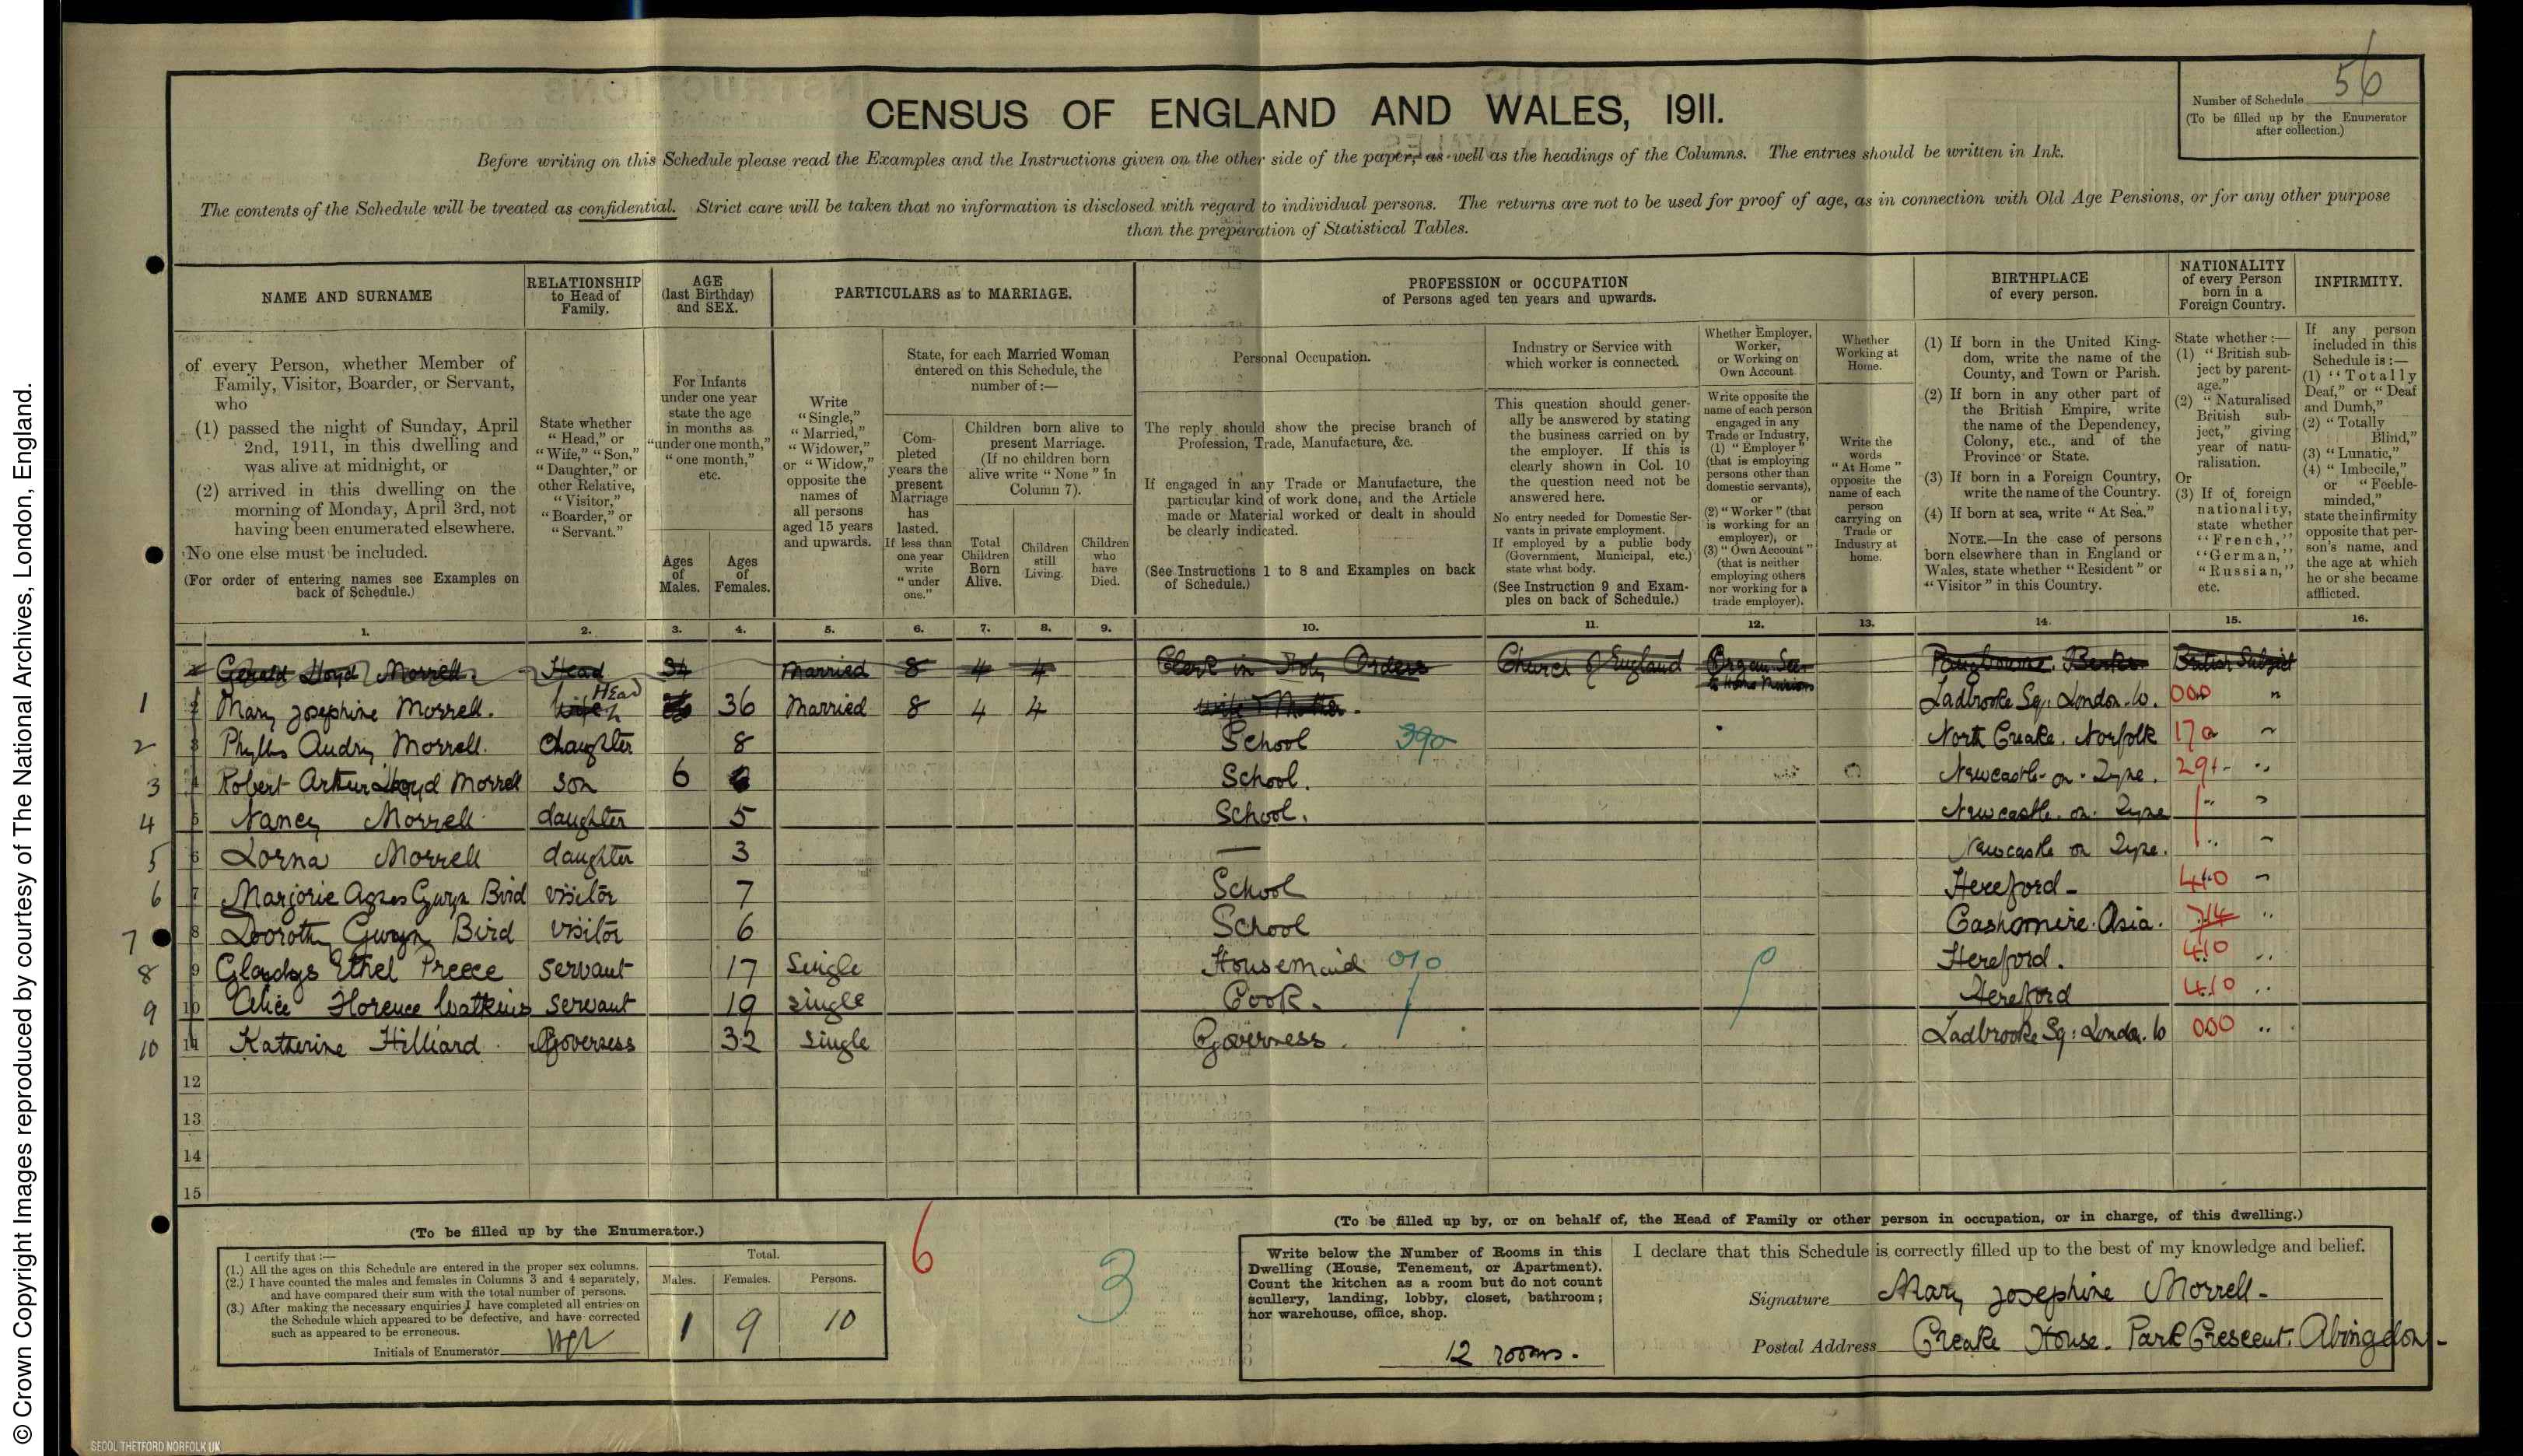 56
Number of Schedule
(To be filled up by the Enumerator
after collection.)
CENSUS OF ENGLAND AND WALES, 1911.
Before writing on this Schedule please read the Examples and the Instructions given on the other side of the paper, as well as the headings of the Columns. The entries should be written in Ink.
The contents of the Schedule will be treated as confidential. Strict care will be taken that no information is disclosed with regard to individual persons. The returns are not to be used for proof of age, as in connection with Old Age Pensions, or for any other purpose
than the preparation of Statistical Tables.
NAME AND SURNAME
of every Person, whether Member of
Family, Visitor, Boarder, or Servant,
who
(1) passed the night of Sunday, April
2nd, 1911, in this dwelling and
was alive at midnight, or
(2) arrived in this dwelling on the
morning of Monday, April 3rd, not
having been enumerated elsewhere.
No one else must be included.
(For order of entering names see Examples on
back of Schedule.)
RELATIONSHIP
to Head of
Family.
State whether
"Head," or
"Wife," "Son,"
"Daughter," or
other Relative,
"Visitor,"
"Boarder," or
"Servant."
AGE
(last Birthday)
and SEX.
For Infants
under one year
state the age
in months as
"under one month,"
"one month,"
etc.
Ages
of
Males.
Ages
of
Females.
PARTICULARS as to MARRIAGE.
Write
"Single,"
"Married,"
"Widower,"
or "Widow,"
opposite the
names of
all persons
aged 15 years
and upwards.
State, for each Married Woman
entered on this Schedule, the
number of:—
Com-
pleted
years the
present
Marriage
has
lasted.
If less than
one year
write
"under
one."
Children born alive to
present Marriage.
(If no children born
alive write "None" in
Column 7).
Total
Children
Born
Alive.
Children
still
Living.
Children
who
have
Died.
PROFESSION or OCCUPATION
of Persons aged ten years and upwards.
Personal Occupation.
The reply should show the precise branch of
Profession, Trade, Manufacture, &c.
If engaged in any Trade or Manufacture, the
particular kind of work done, and the Article
made or Material worked or dealt in should
be clearly indicated.
(See Instructions 1 to 8 and Examples on back
of Schedule.)
Industry or Service with
which worker is connected.
This question should gener-
ally be answered by stating
the business carried on by
the employer. If this is
clearly shown in Col. 10
the question need not be
answered here.
No entry needed for Domestic Ser-
vants in private employment.
If employed by a public body
(Government, Municipal, etc.)
state what body.
(See Instruction 9 and Exam-
ples on back of Schedule.)
Whether Employer,
Worker,
or Working on
Own Account
Write opposite the
name of each person
engaged in any
Trade or Industry,
(1) "Employer"
(that is employing
persons other than
domestic servants),
or
(2) "Worker" (that
is working for an
employer), or
(3) "Own Account"
(that is neither
employing others
nor working for a
trade employer).
Whether
Working at
Home.
Write the
words
"At Home"
opposite the
name of each
person
carrying on
Trade or
Industry at
home.
BIRTHPLACE
of every person.
(1) If born in the United King-
dom, write the name of the
County, and Town or Parish.
(2) If born in any other part of
the British Empire, write
the name of the Dependency,
Colony, etc., and of the
Province or State.
(3) If born in a Foreign Country,
write the name of the Country.
(4) If born at sea, write "At Sea."
NOTE.—In the case of persons
born elsewhere than in England or
Wales, state whether "Resident" or
"Visitor" in this Country.
NATIONALITY
of every Person
born in a
Foreign Country.
State whether:—
(1) "British sub-
ject by parent-
age."
(2) "Naturalised
British sub-
ject," giving
year of natu-
ralisation.
Or
(3) If of foreign
nationality,
state whether
"French,"
"German,"
"Russian,"
etc.
INFIRMITY.
If any person
included in this
Schedule is:—
(1) "Totally
Deaf," or "Deaf
and Dumb,"
(2) "Totally
Blind,"
(3) "Lunatic,"
(4) "Imbecile,"
or "Feeble-
minded,"
state the infirmity
opposite that per-
son's name, and
the age at which
he or she became
afflicted.
1. 2. 3. 4. 5. 6. 7. 8. 9. 10. 11. 12. 13. 14. 15. 16.
Gerald Lloyd Morrell Head 34 Married 8 4 4 Clerk in Holy Orders Church of England Organ. Sec. to Home Mission Pangbourne. Berks British Subject
1 2 Mary Josephine Morrell. Wife Head 36 Married 8 4 4 Ladbrooke Sq. London. W. 000 "
2 3 Phyllis Audry Morrell. daughter 8 School 390 North Creake. Norfolk 17a "
3 4 Robert Arthur Lloyd Morrell son 6 School. Newcastle-on-Tyne. 291 "
4 5 Nancy Morrell daughter 5 School. Newcastle. on. Tyne " "
5 6 Lorna Morrell daughter 3 — Newcastle on Tyne. " "
6 7 Marjorie Agnes Gwyn Bird visitor 7 School Hereford - 410 "
7 8 Dorothy Gwyn Bird visitor 6 School Cashomire. Asia. 714 "
8 9 Gladys Ethel Preece servant 17 Single Housemaid 010 Hereford. 410 "
9 10 Alice Florence Watkins servant 19 single Cook. Hereford 410 "
10 11 Katherine Hilliard. Governess 32 single Governess. Ladbrooke Sq: London. W 000 "
12
13
14
15
(To be filled up by the Enumerator.)
I certify that:—
(1.) All the ages on this Schedule are entered in the proper sex columns.
(2.) I have counted the males and females in Columns 3 and 4 separately,
and have compared their sum with the total number of persons.
(3.) After making the necessary enquiries I have completed all entries on
the Schedule which appeared to be defective, and have corrected
such as appeared to be erroneous.
Initials of Enumerator
Total.
Males. Females. Persons.
1 9 10
6
3
(To be filled up by, or on behalf of, the Head of Family or other person in occupation, or in charge, of this dwelling.)
Write below the Number of Rooms in this
Dwelling (House, Tenement, or Apartment).
Count the kitchen as a room but do not count
scullery, landing, lobby, closet, bathroom;
nor warehouse, office, shop.
12 rooms.
I declare that this Schedule is correctly filled up to the best of my knowledge and belief.
Signature Mary Josephine Morrell-
Postal Address Creake House. Park Crescent. Abingdon-
© Crown Copyright Images reproduced by courtesy of The National Archives, London, England.
SEOOL THETFORD NORFOLK UK